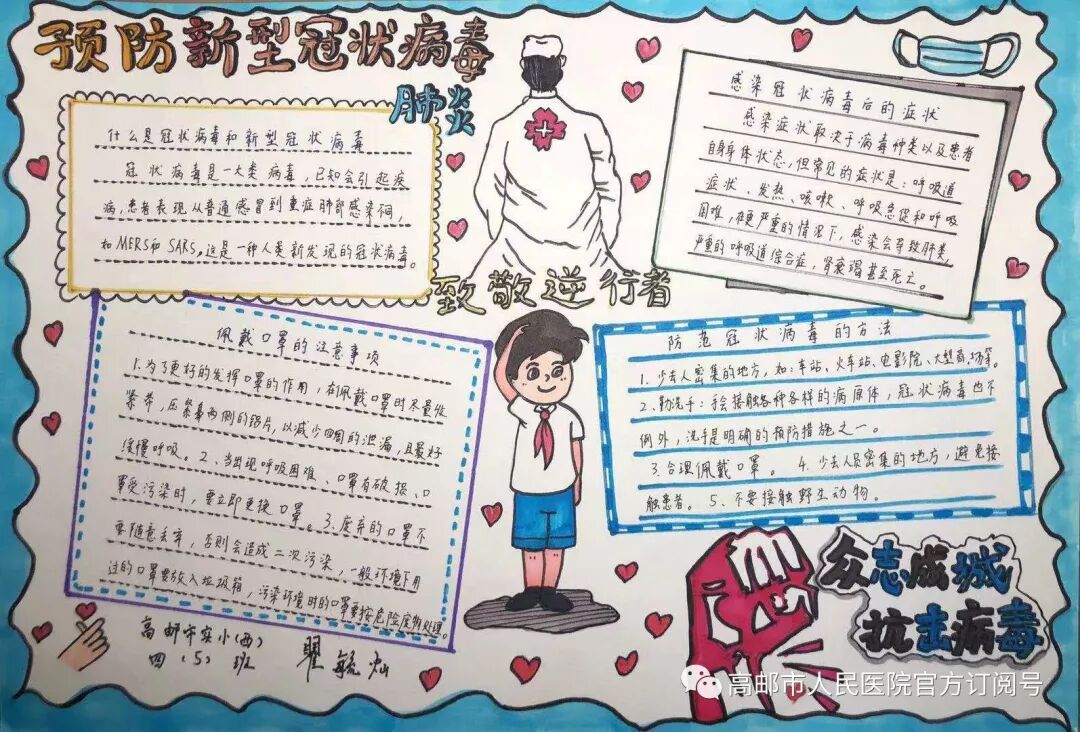 预防新型冠状病毒
肺炎
什么是冠状病毒和新型冠状病毒
冠状病毒是一大类病毒，已知会引起疾
病，患者表现从普通感冒到重症肺部感染不同，
如MERS和SARS。这是一种人类新发现的冠状病毒。
感染冠状病毒后的症状
感染症状取决于病毒种类以及患者
自身身体状态，但常见的症状是：呼吸道
症状、发热、咳嗽、呼吸急促和呼吸
困难，在更严重的情况下，感染会导致肺炎，
严重的呼吸道综合症，肾衰竭甚至死亡。
致敬逆行者
佩戴口罩的注意事项
1.为了更好的发挥口罩的作用，在佩戴口罩时尽量收
紧带，压紧鼻两侧的铝片，以减少四周的泄漏，且最好
缓慢呼吸。2、当出现呼吸困难、口罩有破损、口
罩受污染时，要立即更换口罩。3.废弃的口罩不
要随意丢弃，否则会造成二次污染，一般环境下用
过的口罩要放入垃圾箱，污染环境时的口罩要按危险废物处理。
防范冠状病毒的方法
1.少去人密集的地方，如：车站、火车站、电影院、大型商场等。
2.勤洗手：手会接触各种各样的病原体，冠状病毒也不
例外，洗手是明确的预防措施之一。
3.合理佩戴口罩。 4.少去人员密集的地方，避免接
触患者。 5、不要接触野生动物。
众志成城
抗击病毒
高邮市实小（西）
四（5）班 翟毓灿
高邮市人民医院官方订阅号